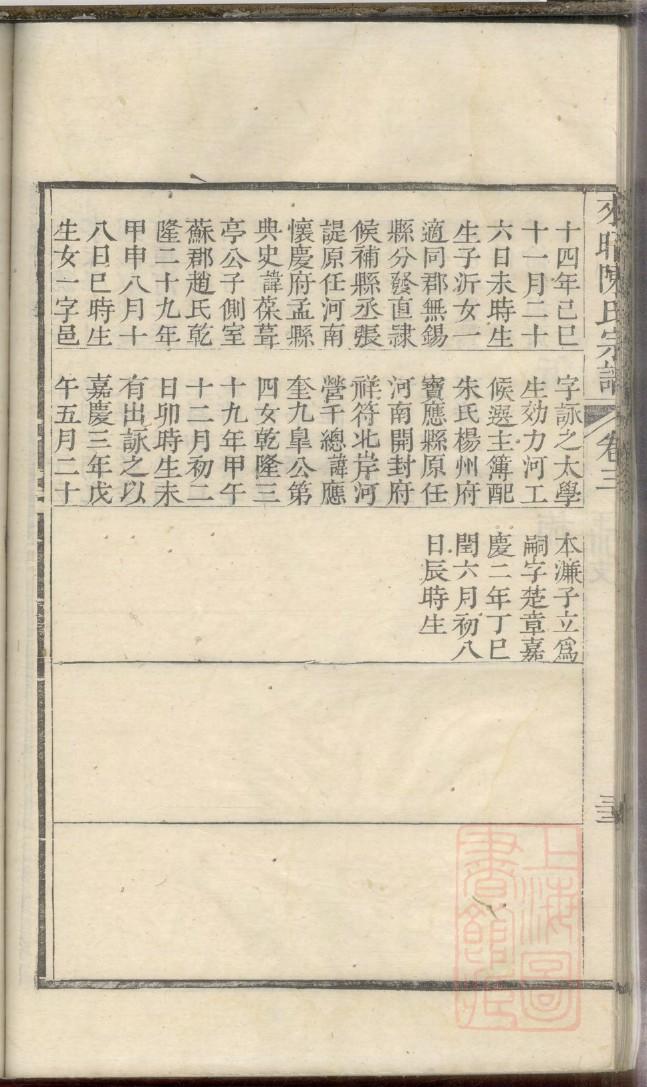 十四年己巳
十一月二十
六日未時生
生子沂女一
適同郡無錫
縣分發直隷
候補縣丞張
諟原任河南
懷慶府孟縣
典史諱葆葺
亭公子側室
蘇郡趙氏乾
隆二十九年
甲申八月十
八日巳時生
生女一字邑
字詠之太學
生効力河工
候選主簿配
朱氏楊州府
寶應縣原任
河南開封府
祥符北岸河
營千總諱應
奎九臯公第
四女乾隆三
十九年甲午
十二月初二
日卯時生未
有出詠之以
嘉慶三年戊
午五月二十
本濂子立爲
嗣字楚章嘉
慶二年丁巳
閏六月初八
日辰時生
陳氏宗譜
卷三
上海圖
書館藏